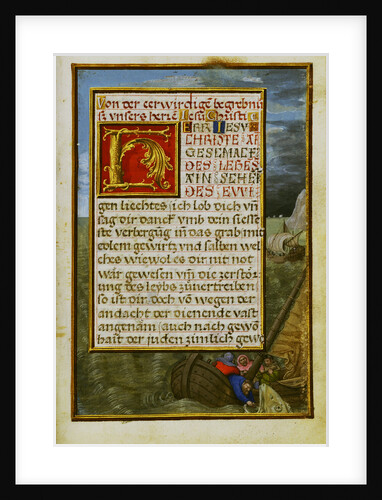 Von der eerwirdigē begrebnu
ß unsers herrē Jesu Christi
HER JESV
CHRISTE AI
GESCMACK
DES LEBES
AIN SCHEI
DES EWI
gen liechtes ich lob dich vn̄
sag dir danck vmb dein süesse
ste verbergūg in das grab mit
edlem gewirtz vnd salben wel
ches wiewol es dir nit not
wār gewesen vm̄ die zerstö
rung des leybs zuuertreiben
so ist dir doch von wegen der
andacht der dienende vast
angenam auch nach gewo
hait der juden zimlich gewe